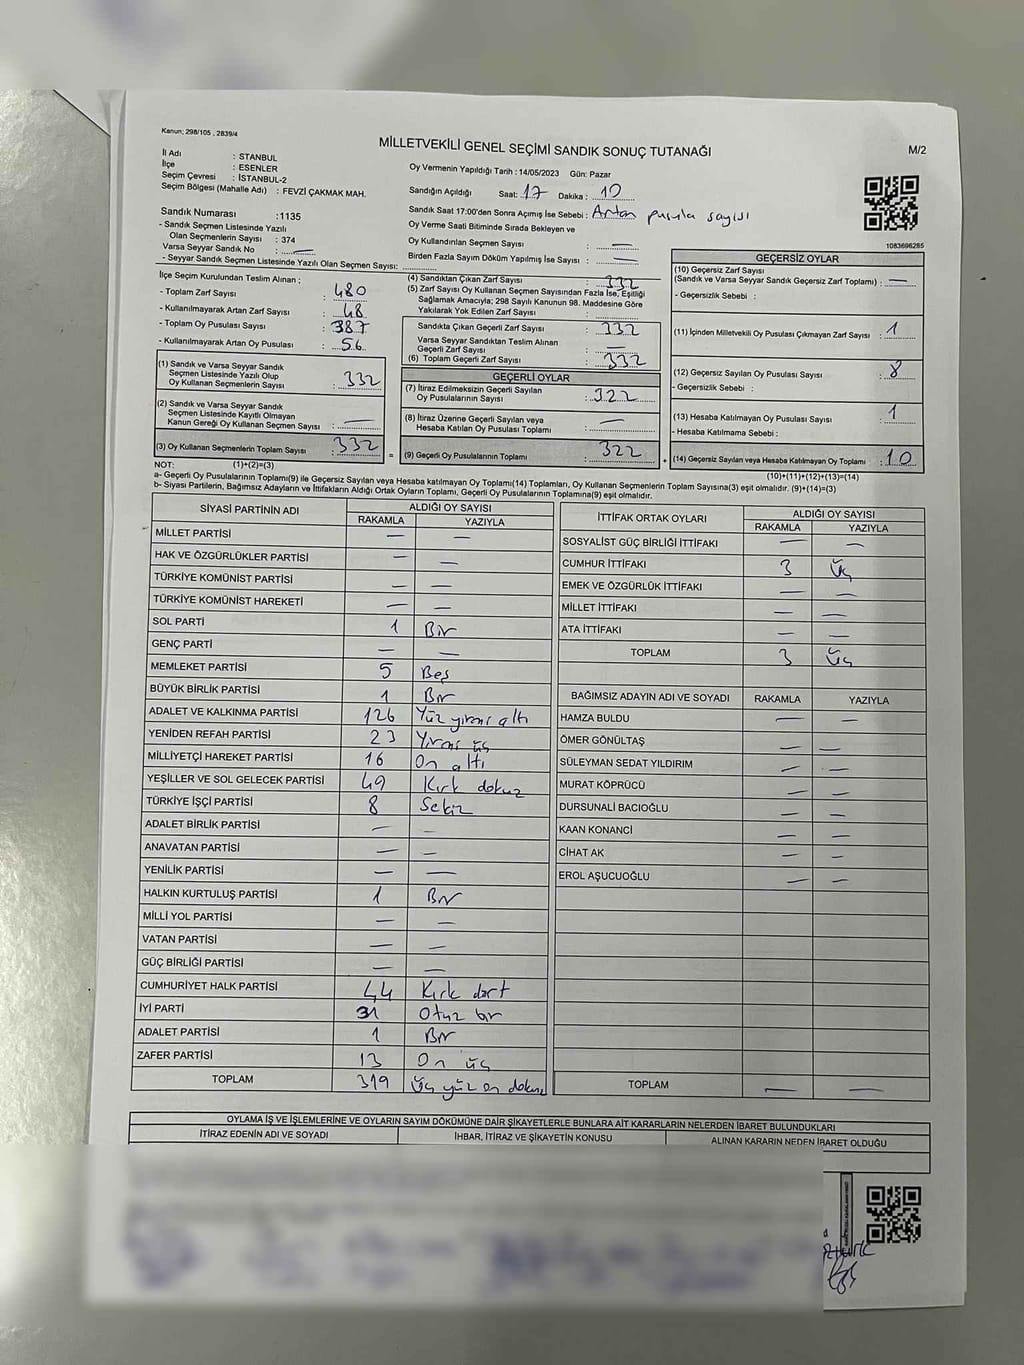 Kanun; 298/105 , 2839/4
MİLLETVEKİLİ GENEL SEÇİMİ SANDIK SONUÇ TUTANAĞI
M/2
İl Adı : STANBUL
İlçe : ESENLER
Seçim Çevresi : İSTANBUL-2
Seçim Bölgesi (Mahalle Adı) : FEVZİ ÇAKMAK MAH.
Oy Vermenin Yapıldığı Tarih : 14/05/2023 Gün: Pazar
Sandığın Açıldığı Saat: 17 Dakika : 10
Sandık Saat 17:00'den Sonra Açımış İse Sebebi : Artan pusula sayısı
Oy Verme Saati Bitiminde Sırada Bekleyen ve
Oy Kullandırılan Seçmen Sayısı : —
Birden Fazla Sayım Döküm Yapılmış İse Sayısı : —
1083696285
Sandık Numarası :1135
- Sandık Seçmen Listesinde Yazılı
Olan Seçmenlerin Sayısı : 374
Varsa Seyyar Sandık No : —
- Seyyar Sandık Seçmen Listesinde Yazılı Olan Seçmen Sayısı:
İlçe Seçim Kurulundan Teslim Alınan ;
- Toplam Zarf Sayısı : 480
- Kullanılmayarak Artan Zarf Sayısı : 48
- Toplam Oy Pusulası Sayısı : 387
- Kullanılmayarak Artan Oy Pusulası : 56
(1) Sandık ve Varsa Seyyar Sandık
Seçmen Listesinde Yazılı Olup
Oy Kullanan Seçmenlerin Sayısı : 332
(2) Sandık ve Varsa Seyyar Sandık
Seçmen Listesinde Kayıtlı Olmayan
Kanun Gereği Oy Kullanan Seçmen Sayısı : —
(3) Oy Kullanan Seçmenlerin Toplam Sayısı : 332
(4) Sandıktan Çıkan Zarf Sayısı : 332
(5) Zarf Sayısı Oy Kullanan Seçmen Sayısından Fazla İse, Eşitliği
Sağlamak Amacıyla; 298 Sayılı Kanunun 98. Maddesine Göre
Yakılarak Yok Edilen Zarf Sayısı :
Sandıkta Çıkan Geçerli Zarf Sayısı : 332
Varsa Seyyar Sandıktan Teslim Alınan
Geçerli Zarf Sayısı : —
(6) Toplam Geçerli Zarf Sayısı : 332
GEÇERLİ OYLAR
(7) İtiraz Edilmeksizin Geçerli Sayılan
Oy Pusulalarının Sayısı : 322
(8) İtiraz Üzerine Geçerli Sayılan veya
Hesaba Katılan Oy Pusulası Toplamı : —
= (9) Geçerli Oy Pusulalarının Toplamı : 322
GEÇERSİZ OYLAR
(10) Geçersiz Zarf Sayısı
(Sandık ve Varsa Seyyar Sandık Geçersiz Zarf Toplamı) : —
- Geçersizlik Sebebi :
(11) İçinden Milletvekili Oy Pusulası Çıkmayan Zarf Sayısı : 1
(12) Geçersiz Sayılan Oy Pusulası Sayısı : 8
- Geçersizlik Sebebi :
(13) Hesaba Katılmayan Oy Pusulası Sayısı : 1
- Hesaba Katılmama Sebebi :
+ (14) Geçersiz Sayılan veya Hesaba Katılmayan Oy Toplamı : 10
NOT: (1)+(2)=(3) (10)+(11)+(12)+(13)=(14)
a- Geçerli Oy Pusulalarının Toplamı(9) ile Geçersiz Sayılan veya Hesaba katılmayan Oy Pusulası(14) Toplamları, Oy Kullanan Seçmenlerin Toplam Sayısına(3) eşit olmalıdır. (9)+(14)=(3)
b- Siyasi Partilerin, Bağımsız Adayların ve İttifakların Aldığı Ortak Oyların Toplamı, Geçerli Oy Pusulalarının Toplamına(9) eşit olmalıdır.
SİYASİ PARTİNİN ADI ALDIĞI OY SAYISI
RAKAMLA YAZIYLA
MİLLET PARTİSİ — —
HAK VE ÖZGÜRLÜKLER PARTİSİ — —
TÜRKİYE KOMÜNİST PARTİSİ — —
TÜRKİYE KOMÜNİST HAREKETİ — —
SOL PARTİ 1 Bir
GENÇ PARTİ — —
MEMLEKET PARTİSİ 5 Beş
BÜYÜK BİRLİK PARTİSİ 1 Bir
ADALET VE KALKINMA PARTİSİ 126 Yüz yirmi altı
YENİDEN REFAH PARTİSİ 23 Yirmi üç
MİLLİYETÇİ HAREKET PARTİSİ 16 On altı
YEŞİLLER VE SOL GELECEK PARTİSİ 49 Kırk dokuz
TÜRKİYE İŞÇİ PARTİSİ 8 Sekiz
ADALET BİRLİK PARTİSİ — —
ANAVATAN PARTİSİ — —
YENİLİK PARTİSİ — —
HALKIN KURTULUŞ PARTİSİ 1 Bir
MİLLİ YOL PARTİSİ — —
VATAN PARTİSİ — —
GÜÇ BİRLİĞİ PARTİSİ — —
CUMHURİYET HALK PARTİSİ 44 Kırk dört
İYİ PARTİ 31 Otuz bir
ADALET PARTİSİ 1 Bir
ZAFER PARTİSİ 13 On üç
TOPLAM 319 Üç yüz on dokuz
İTTİFAK ORTAK OYLARI ALDIĞI OY SAYISI
RAKAMLA YAZIYLA
SOSYALİST GÜÇ BİRLİĞİ İTTİFAKI — —
CUMHUR İTTİFAKI 3 Üç
EMEK VE ÖZGÜRLÜK İTTİFAKI — —
MİLLET İTTİFAKI — —
ATA İTTİFAKI — —
TOPLAM 3 Üç
BAĞIMSIZ ADAYIN ADI VE SOYADI RAKAMLA YAZIYLA
HAMZA BULDU — —
ÖMER GÖNÜLTAŞ — —
SÜLEYMAN SEDAT YILDIRIM — —
MURAT KÖPRÜCÜ — —
DURSUNALİ BACIOĞLU — —
KAAN KONANCİ — —
CİHAT AK — —
EROL AŞUCUOĞLU — —
TOPLAM — —
OYLAMA İŞ VE İŞLEMLERİNE VE OYLARIN SAYIM DÖKÜMÜNE DAİR ŞİKAYETLERLE BUNLARA AİT KARARLARIN NELERDEN İBARET BULUNDUKLARI
İTİRAZ EDENİN ADI VE SOYADI İHBAR, İTİRAZ VE ŞİKAYETİN KONUSU ALINAN KARARIN NEDEN İBARET OLDUĞU